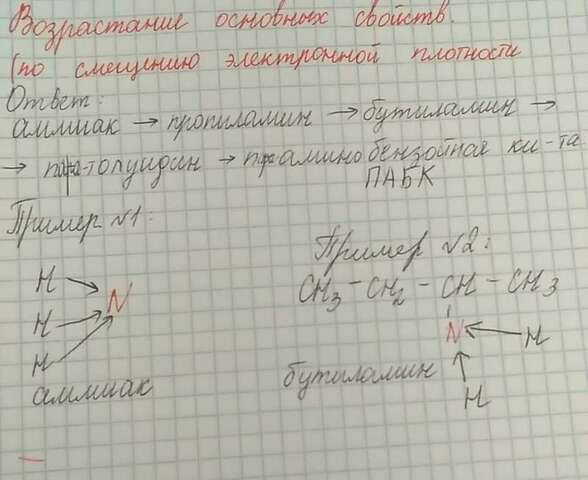 Возрастание основных свойств.
(по смещению электронной плотности
Ответ:
аммиак → пропиламин → бутиламин →
→ пара-толуидин → п-аминобензойная ки-та
ПАБК
Пример №1:
Пример №2:
H
N
H
H
аммиак
CH3 - CH2 - CH - CH3
N
H
H
бутиламин